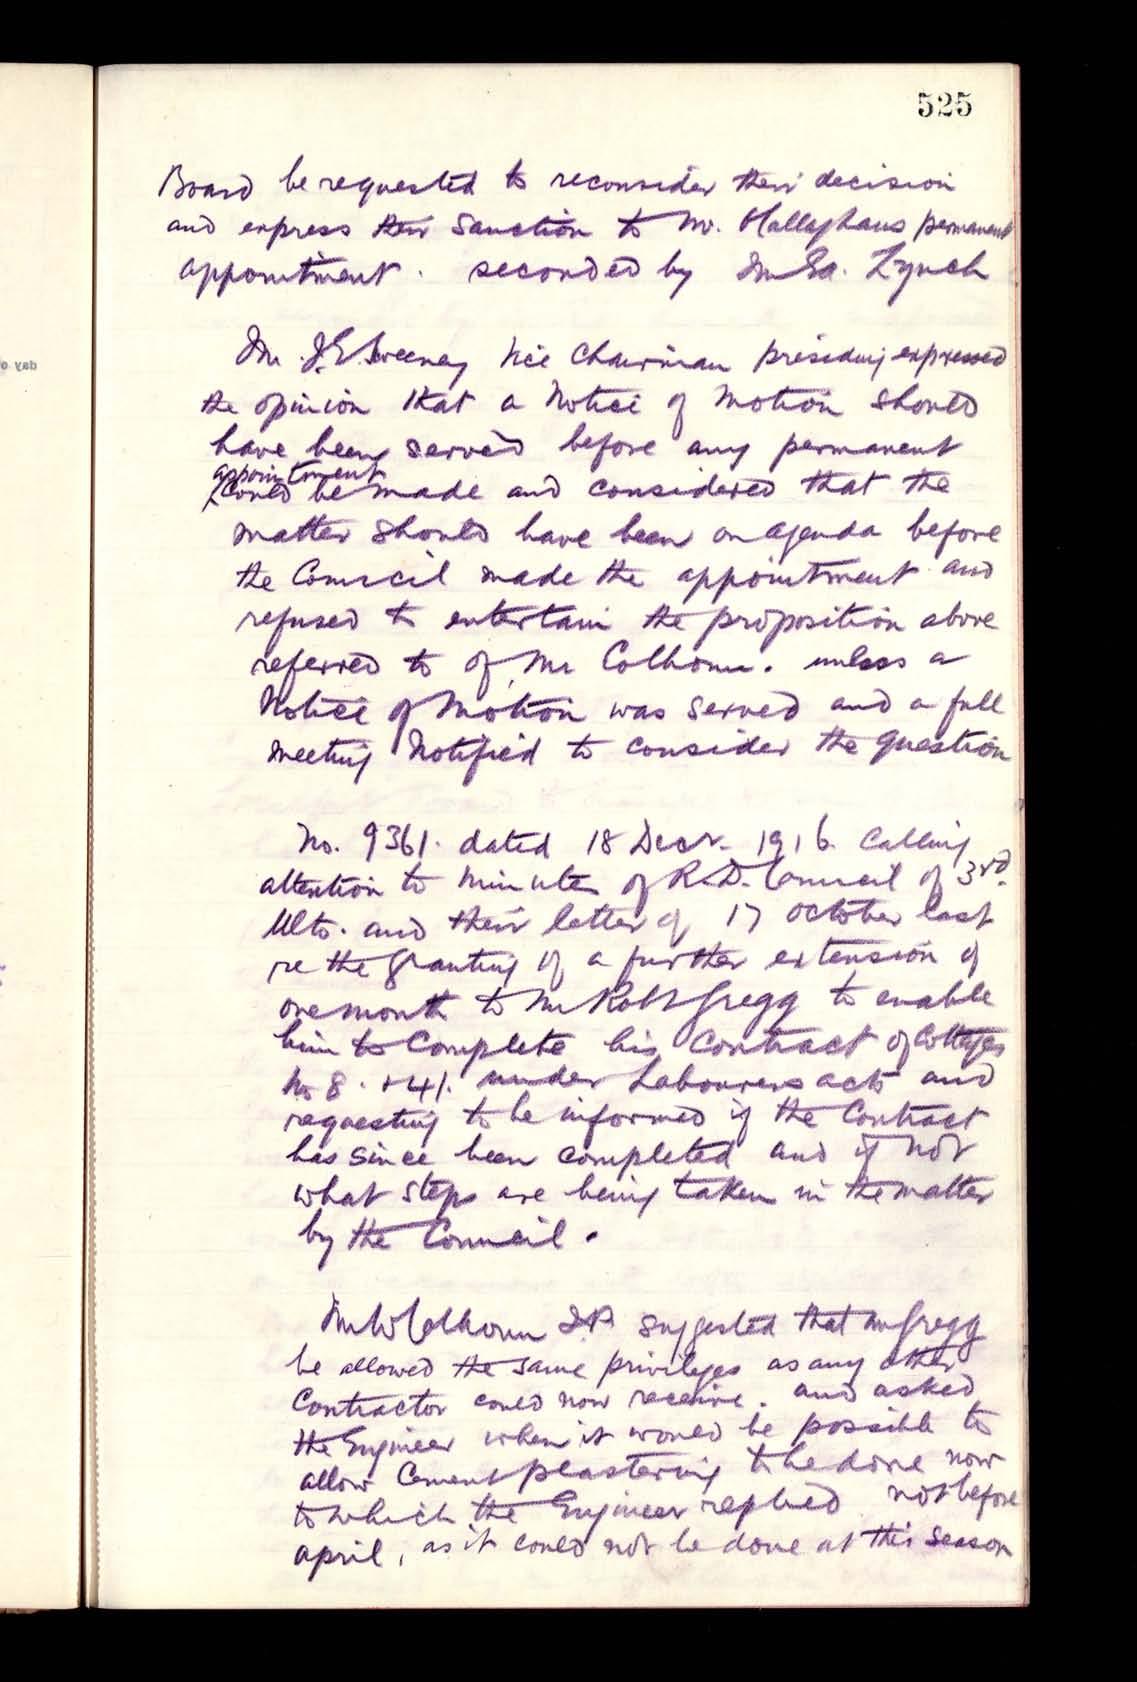 525
Board be requested to reconsider their decision
and express their Sanction to Mr. O'Hallaghans permanent
appointment. seconded by Mr Ed. Lynch
Mr. J. E. Sweeney Vice Chairman presiding expressed
the opinion that a Notice of Motion should
have been served before any permanent
appointment
could be made and considered that the
matter should have been on agenda before
the Council made the appointment and
refused to entertain the proposition above
referred to of Mr Colhoun. unless a
Notice of Motion was served and a full
meeting Notified to consider the question
No. 9361. dated 18 Decr. 1916. Calling
attention to Minutes of R.D. Council of 3rd.
Ulto. and their letter of 17 October last
re the granting of a further extension of
one month to Mr Robt Gregg to enable
him to Complete his Contract of Cottages
No 8. & 41. under Labourers acts and
requesting to be informed if the Contract
has since been completed and if not
what steps are being taken in the matter
by the Council.
Mr W Colhoun J.P. suggested that Mr Gregg
be allowed the same privileges as any other
Contractor could now receive. and asked
the Engineer when it would be possible to
allow Cement plastering to be done now
to which the Engineer replied not before
april, as it could not be done at this season
day o